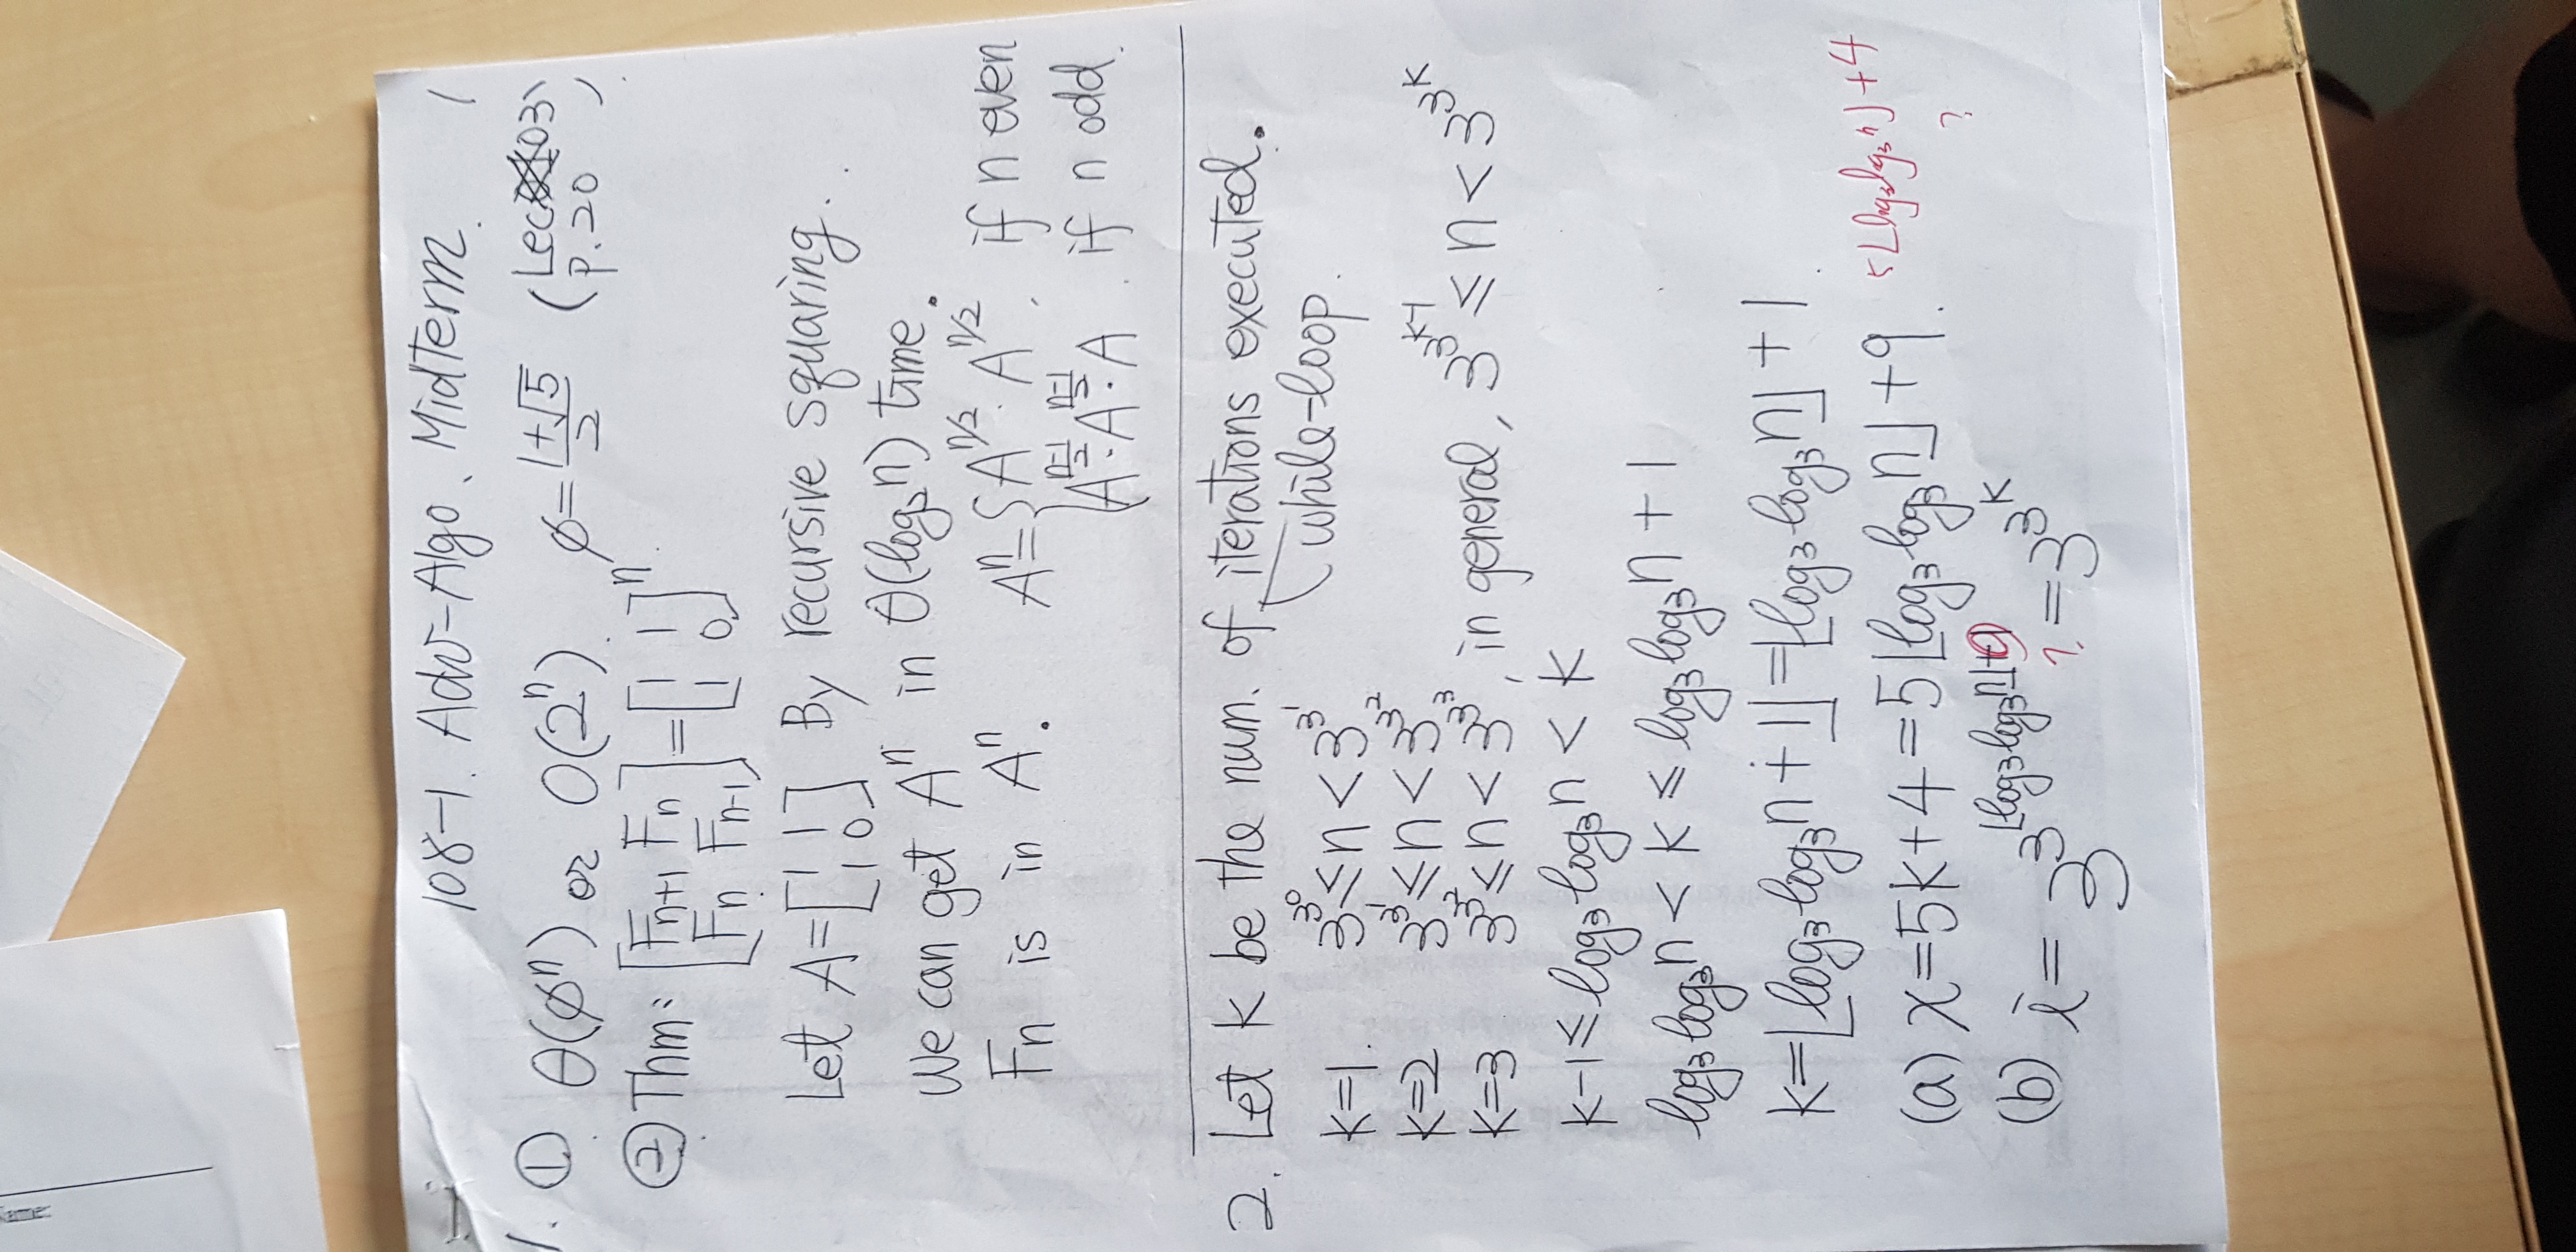 108-1. Adv-Algo. Midterm. 1
1. ① θ(φⁿ) or O(2ⁿ). φ = (1+√5)/2 (Lec 03 p.20)
② Thm: [Fn+1 Fn; Fn Fn-1] = [1 1; 1 0]ⁿ.
Let A = [1 1; 1 0] By recursive squaring.
We can get Aⁿ in θ(log₂n) time.
Fn is in Aⁿ. Aⁿ = { A^(n/2) · A^(n/2), if n even
A^((n-1)/2) · A^((n-1)/2) · A . if n odd.
2. Let k be the num. of iterations executed.
while-loop.
k=1. 3^3^0 ≤ n < 3^3^1
k=2 3^3^1 ≤ n < 3^3^2
k=3 3^3^2 ≤ n < 3^3^3, in general, 3^3^(k-1) ≤ n < 3^3^k
k-1 ≤ log₃log₃n < k
log₃log₃n < k ≤ log₃log₃n + 1
k = ⌊log₃log₃n + 1⌋ = ⌊log₃log₃n⌋ + 1.
(a) x = 5k+4 = 5⌊log₃log₃n⌋ + 9. 5⌊log₃log₃n⌋ + 4
?
(b) i = 3^3^(⌊log₃log₃n⌋+1) = 3^3^k
?